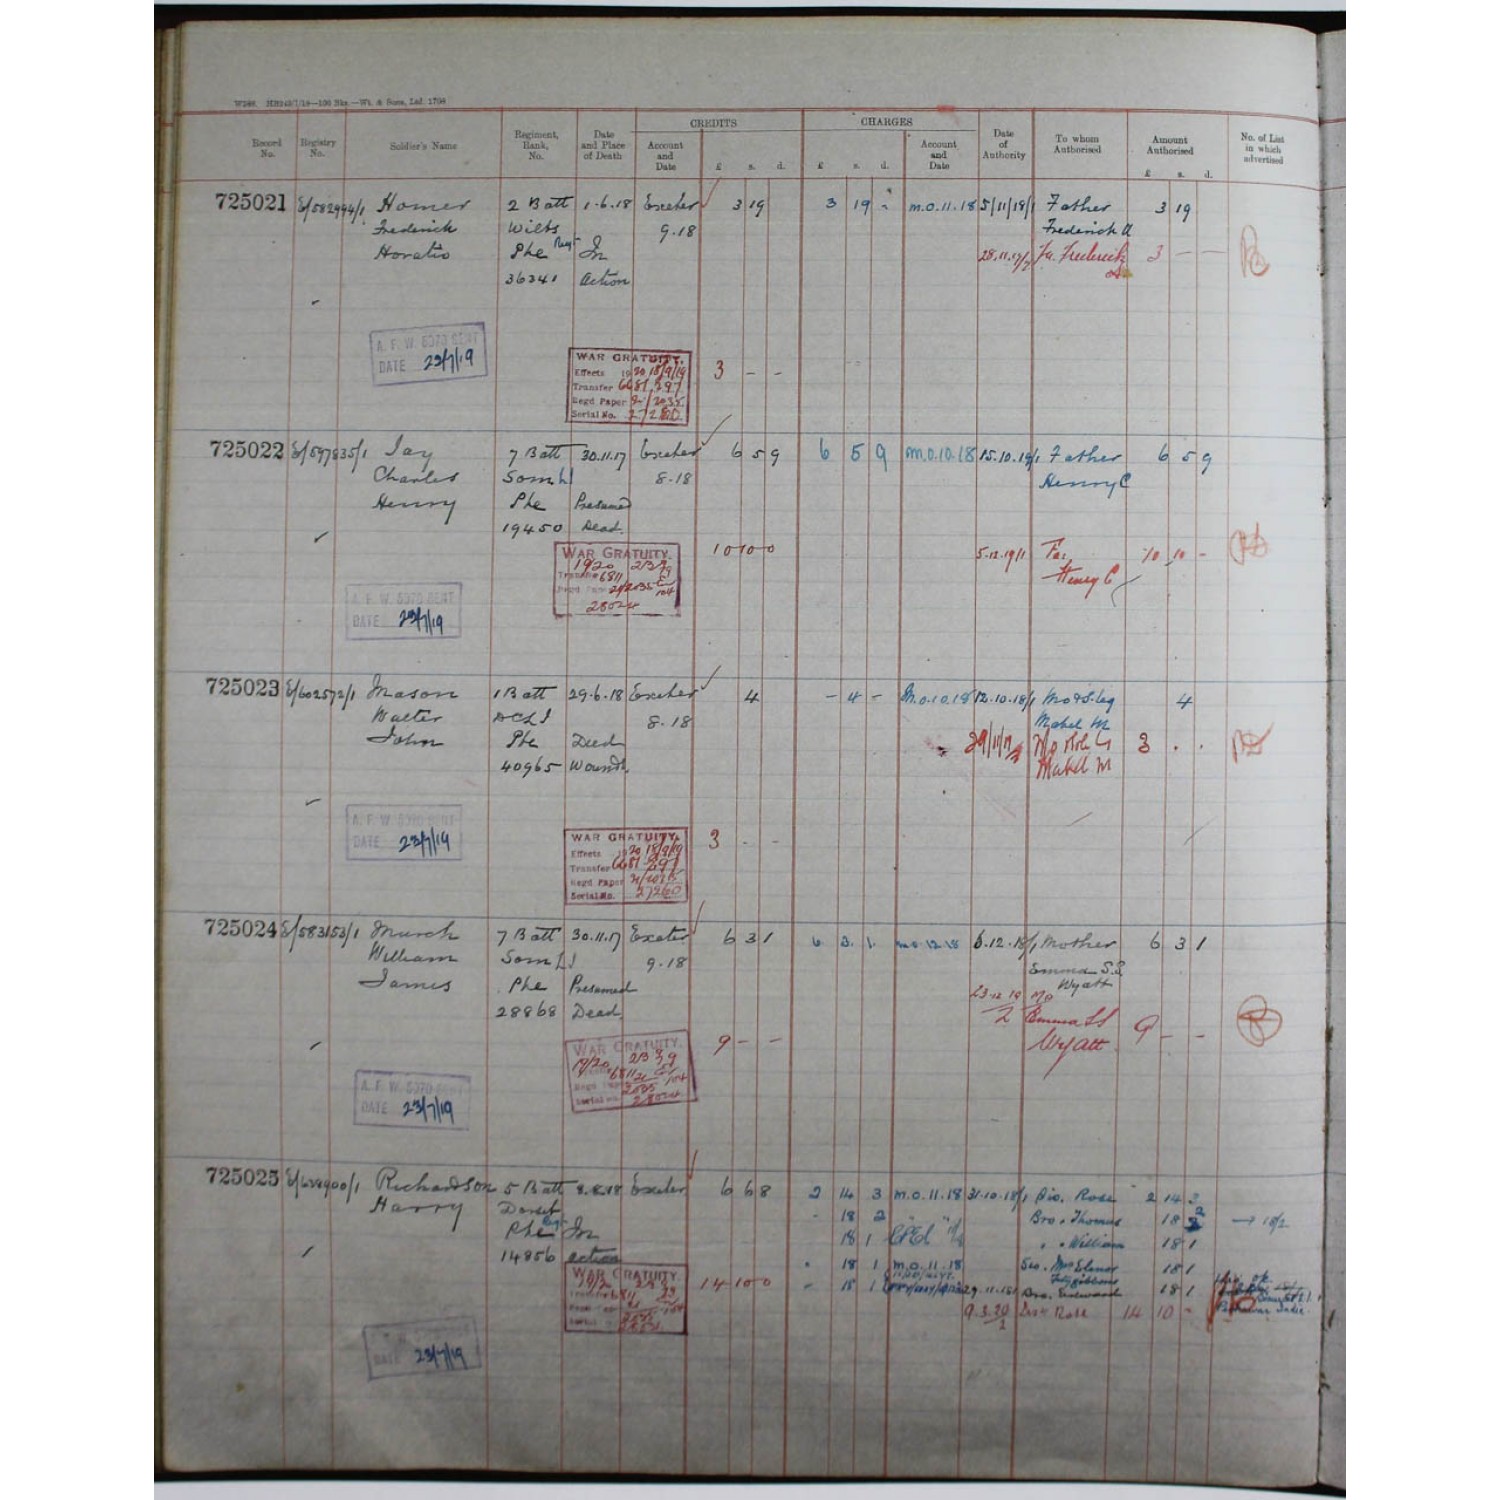 W286. HB249/1/18—100 Bks.—Wt. & Sons, Ltd. 1708
CREDITS CHARGES
Record No. Registry No. Soldier's Name Regiment, Rank, No. Date and Place of Death Account and Date £ s. d. £ s. d. Account and Date Date of Authority To whom Authorised Amount Authorised £ s. d. No. of List in which advertised
725021 E/582994/1 Homer 2 Batt 1.6.18 Exeter 3 19 3 19 - m.o.11.18 5/11/18/1 Father 3 19
Frederick Wilts 9.18 Frederick H
Horatio Pte Regt In 28.11.19/7 Fa. Frederick 3 — —
36341 Action
A. F. W. 5070 SENT
DATE 23/7/19
WAR GRATUITY. 3 - -
Effects 1920 18/9/19
Transfer 6681 297
Regd Paper 2035
Serial No.
725022 E/597835/1 Jay 7 Batt 30.11.17 Exeter 6 5 9 6 5 9 m.o.10.18 15.10.18/1 Father 6 5 9
Charles Som LI 8.18 Henry C
Henry Pte Presumed
19450 Dead.
WAR GRATUITY. 10 10 0 5.12.19/1 Fa. 10 10 -
19/20 Henry C
6811
28024
A. F. W. 5070 SENT
DATE 23/7/19
725023 E/602572/1 Mason 1 Batt 29.6.18 Exeter 4 - 4 - m.o.10.18 12.10.18/1 Mo & S. Leg 4
Walter DCLI 8.18 Mabel M
John Pte Died 29/11/19 Mo Sole Leg 3 . .
40965 Wounds. Mabel M
A. F. W. 5070 SENT
DATE 23/7/19
WAR GRATUITY. 3 - -
Effects 1920 18/9/19
Transfer 6681 297
Regd Paper
Serial No. 27260
725024 E/583153/1 Murch 7 Batt 30.11.17 Exeter 6 3 1 6. 3. 1. m.o.12.18 6.12.18/1 Mother 6 3 1
William Som LI 9.18 Emma S.S.
James Pte Presumed Wyatt
28868 Dead. 23.12.19/2 Mo Emma SS 9 - -
Wyatt
WAR GRATUITY. 9 - -
19/20
6811
Regd Paper 2035
Serial No. 28024
A. F. W. 5070 SENT
DATE 23/7/19
725025 Richardson 5 Batt 8.8.18 Exeter 6 6 8 2 14 3 m.o.11.18 31.10.18/1 Sis. Rose 2 14 3
Harry Dorset - 18 2 Bro. Thomas 18 2 → 18/2
Pte Regt In 18 1 " William 18 1
14856 action 18 1 m.o.11.18 Sis. Mrs Elenor Fitzgibbons 18 1
WAR GRATUITY. 14 10 0 - 18 1 29.11.18/1 Bro. 18 1
9.3.20/1 Sis Rose 14 10 -
Peshawar India.
DATE 23/7/19